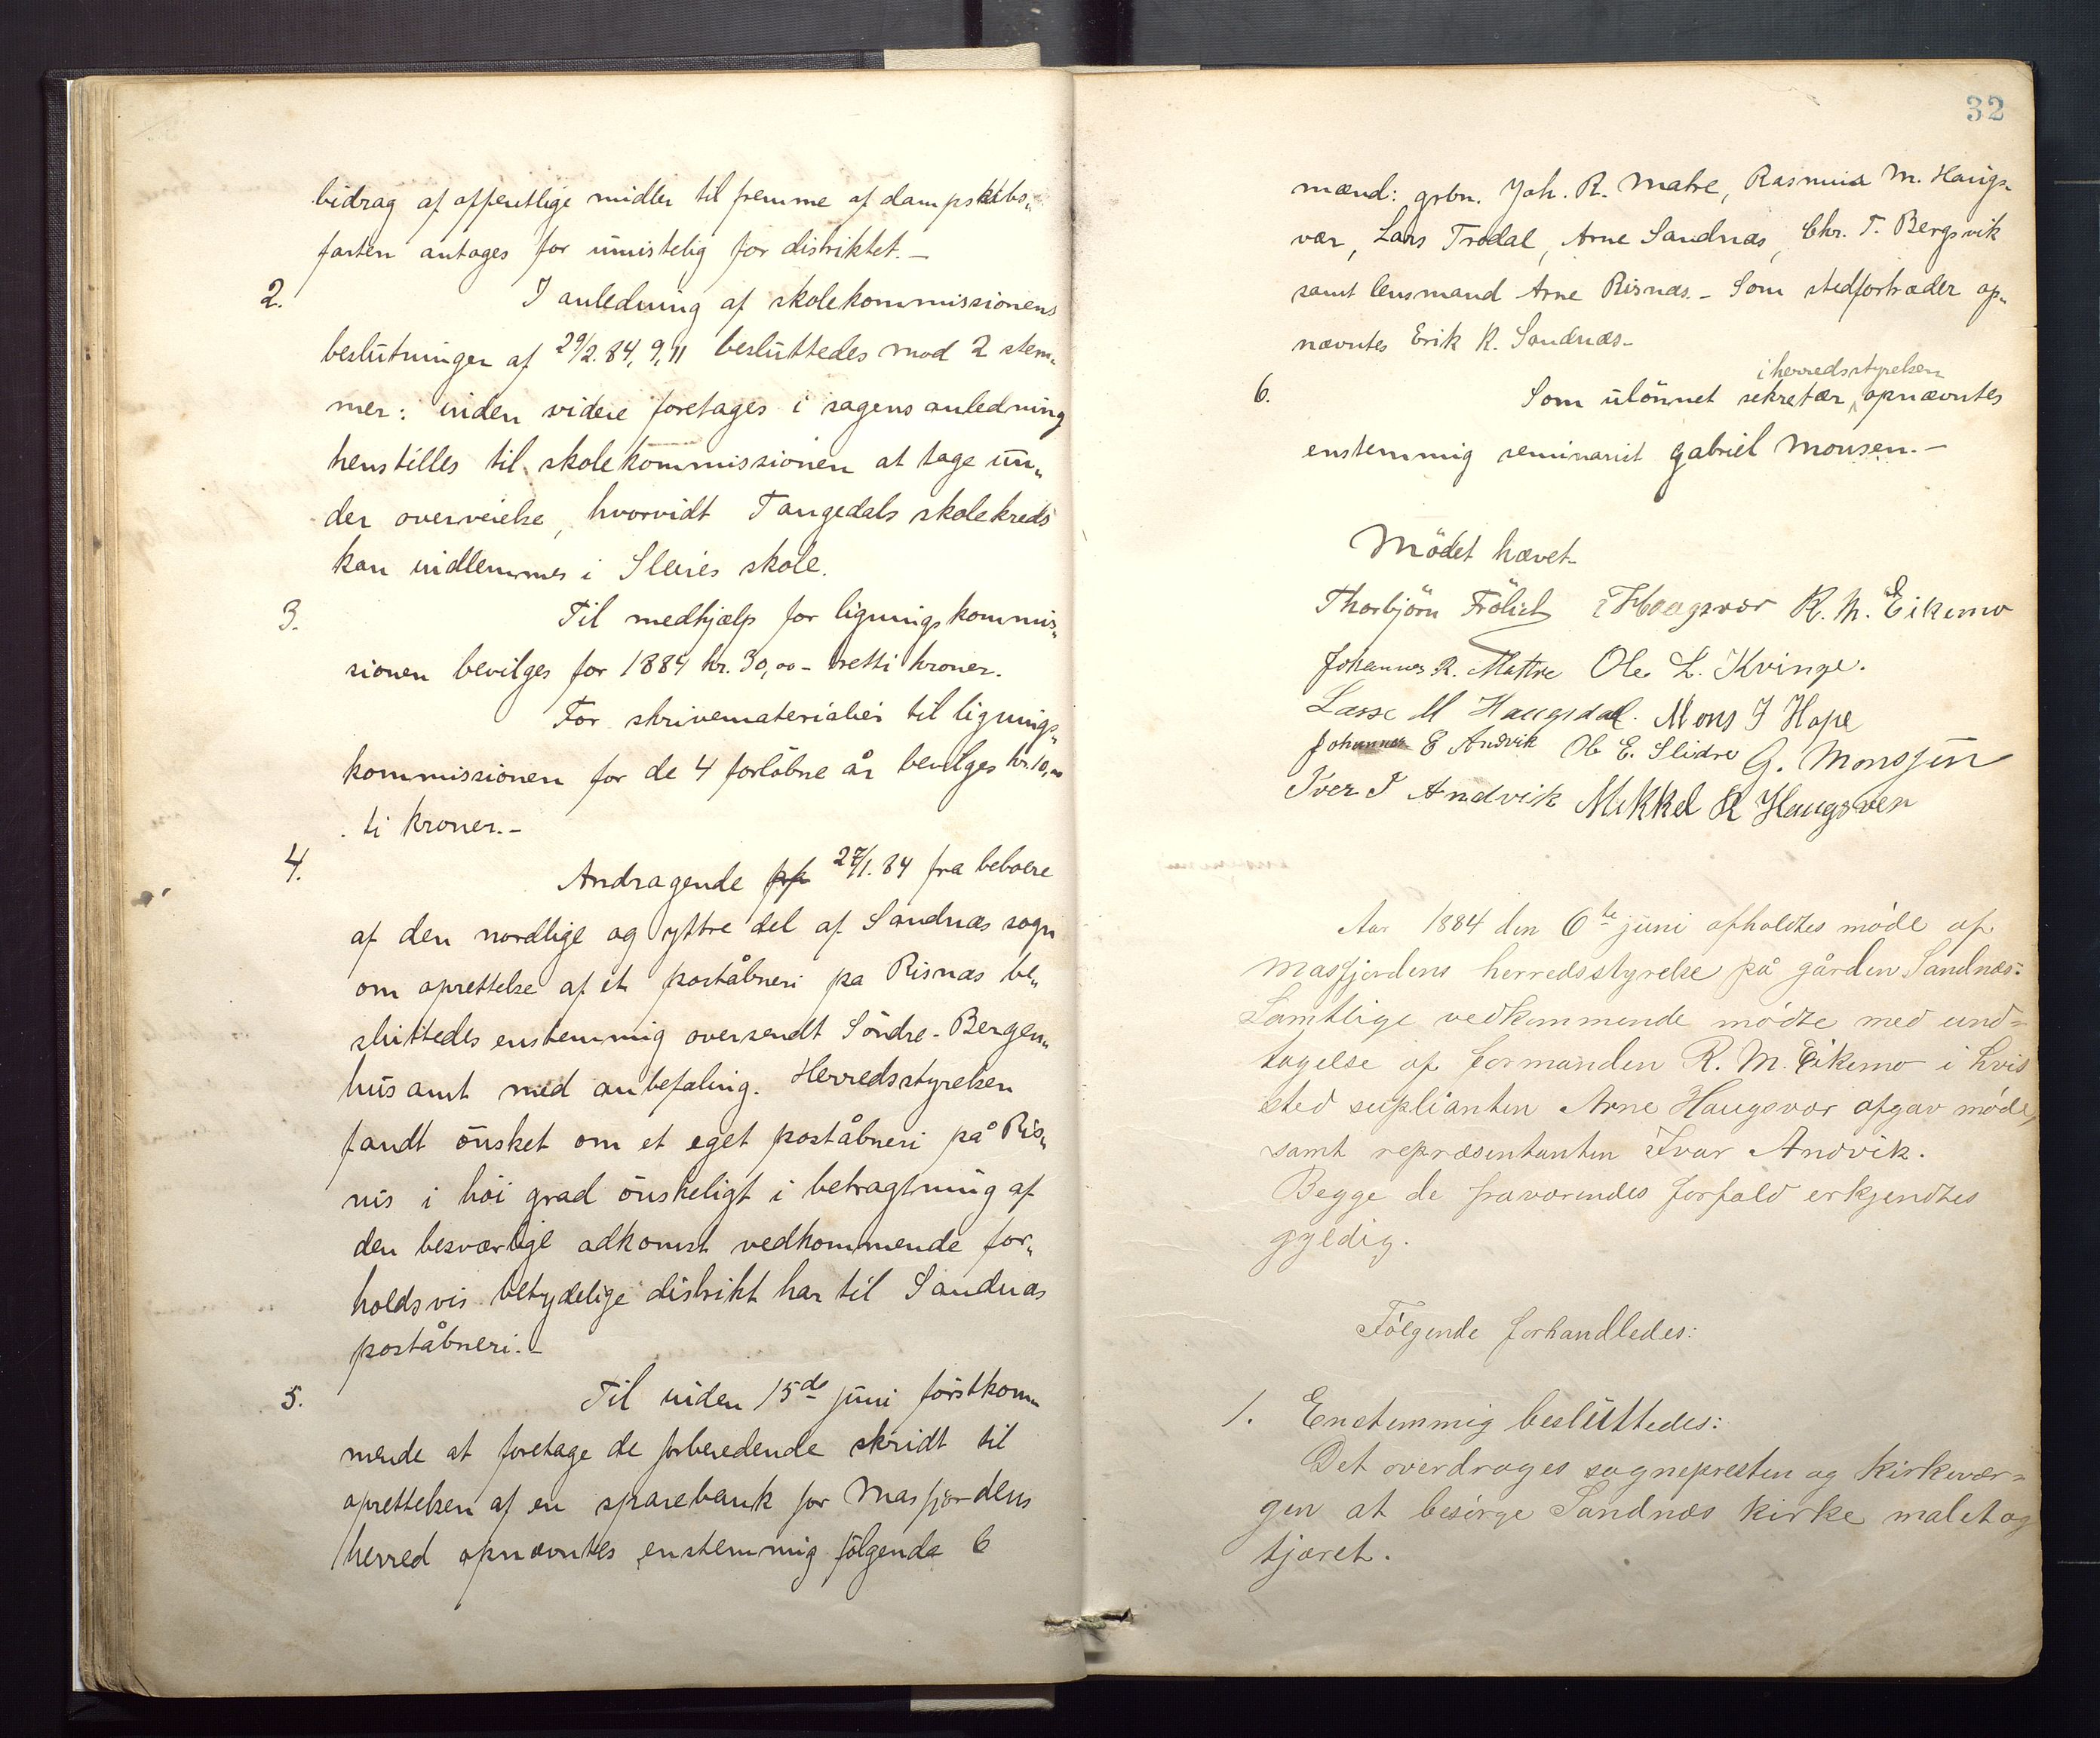 bidrag af offentlige midler til fremme af dampskibs„
farten antages for umistelig for distriktet. —
2. I anledning af skolekommissionens
beslutninger af 29/2. 84, 9, 11 besluttedes mod 2 stem„
mer: inden videre foretages i sagens anledning
henstilles til skolekommissionen at tage un„
der overveielse, hvorvidt Tangedals skolekreds
kan indlemmes i Sleires skole.
3. Til medhjælp for ligningskommis„
sionen bevilges for 1884 kr. 30,00 – tretti kroner.
For skrivematerialier til lignings„
kommissionen for de 4 forløbne år bevilges kr. 10,00
ti kroner. –
4. Andragende 27/1. 84 fra beboere
af den nordlige og yttre del af Sandnæs sogn
om oprettelse af et poståbneri pa Risnæs be„
sluttedes enstemmig oversendt Söndre-Bergen„
hus amt med anbefaling. Herredsstyrelsen
fandt önsket om et eget poståbneri på Ris„
næs i höi grad önskeligt i betragtning af
den besværlige adkomst vedkommende for„
holdsvis betydelige distrikt har til Sandnæs
poståbneri. –
5. Til inden 15de juni förstkom„
mende at foretage de forberedende skridt til
oprettelsen af en sparebank for Masfjordens
herred opnævntes enstemmig følgende 6
32
mænd: grbr. Joh. R. Matre, Rasmus M. Haugs„
vær, Lars Trodal, Arne Sandnæs, Chr. T. Bergsvik
samt lensmand Arne Risnæs. – Som stedfortræder op„
nævntes Erik K. Sandnæs. –
i herredsstyrelsen
6. Som ulönnet sekretær opnævntes
enstemmig seminarist Gabriel Monsen. –
Mödet hævet.
Thorbjörn Frölich Haugsvær R. M. Eikemo
Johannes R. Mattre Ole L. Kvinge.
Lasse M Haugsdal. Mons J Hope
Johannes E Andvik Ole E. Slidre G. Monssen
Iver I Andvik Mikkel R Haugsvær
Aar 1884 den 6te juni afholdtes møde af
Masfjordens herredsstyrelse på gården Sandnæs:
Samtlige vedkommende mødte med und=
tagelse af formanden R. M. Eikemo i hvis
sted suplianten Arne Haugsvær afgav møde,
samt repræsentanten Ivar Andvik.
Begge de fraværendes forfald erkjendtes
gyldig.
Følgende forhandledes:
1. Enstemmig besluttedes:
Det overdrages sognepresten og kirkevær=
gen at besørge Sandnæs kirke malet og
tjæret.